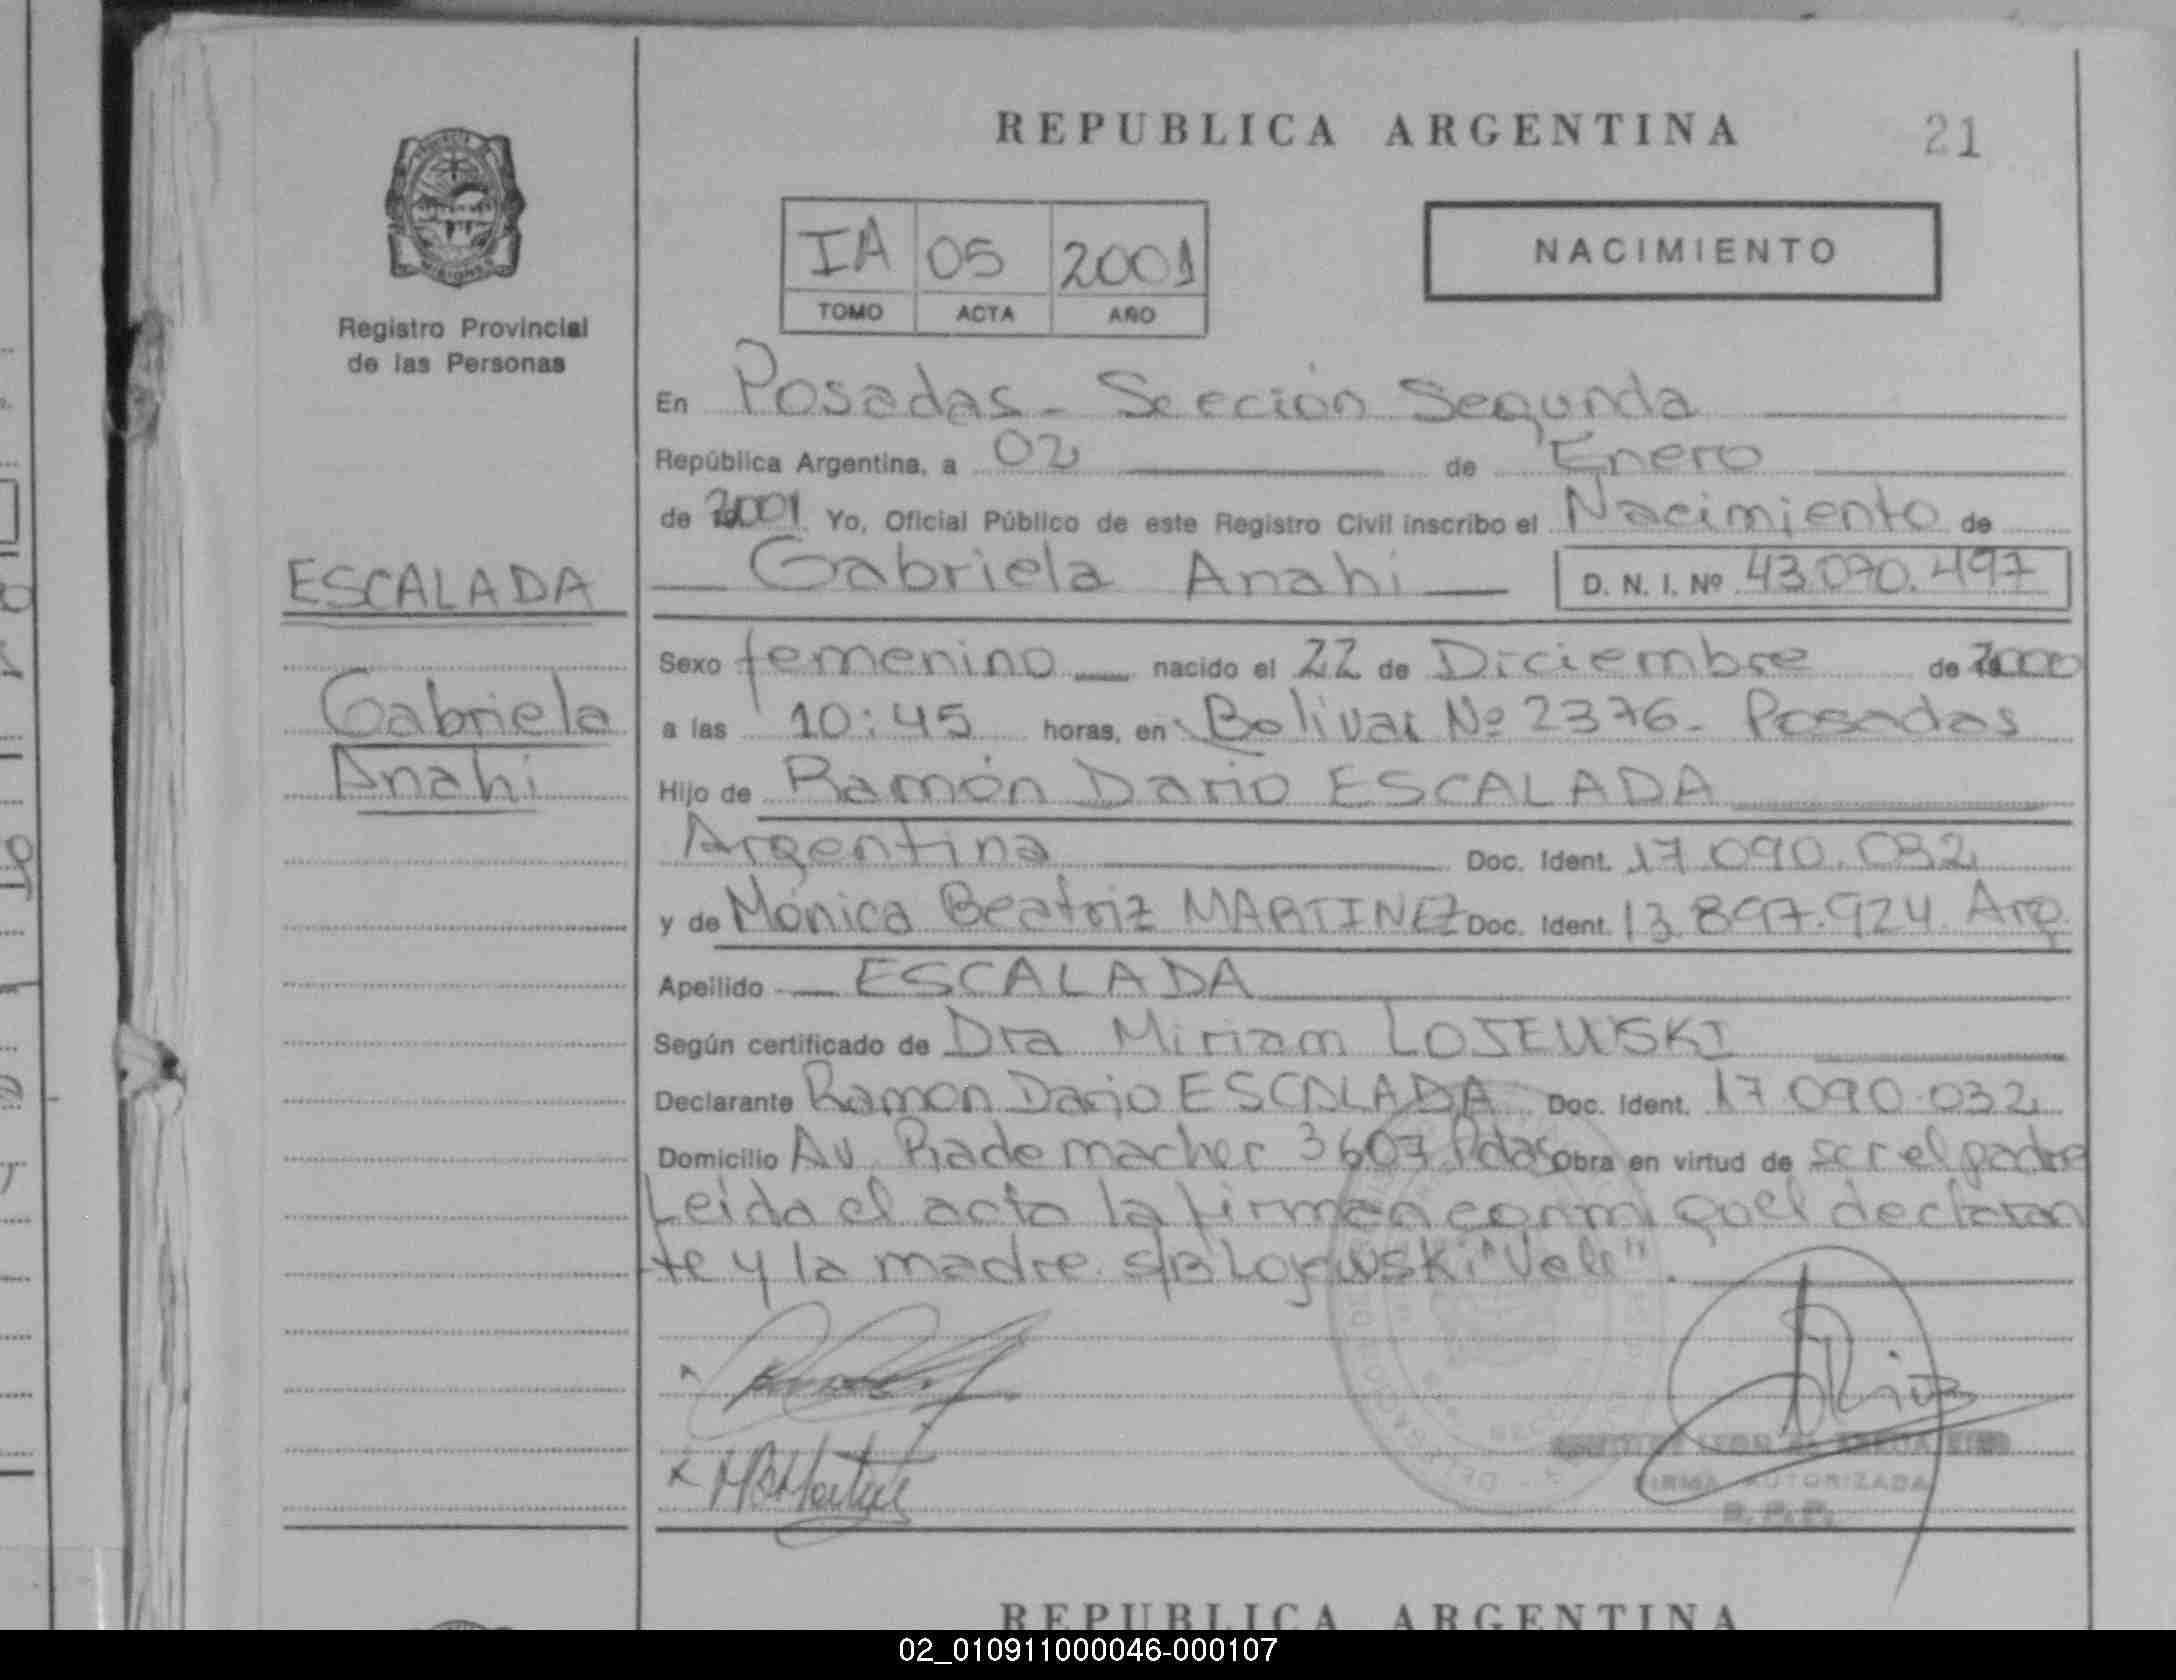 REPUBLICA ARGENTINA
21
IA 05 2001
TOMO ACTA AÑO
NACIMIENTO
Registro Provincial
de las Personas
En Posadas - Sección Segunda
República Argentina, a 02 de Enero
de 2001 Yo, Oficial Público de este Registro Civil inscribo el Nacimiento de
Gabriela Anahi D. N. I. Nº 43.090.497
ESCALADA
Gabriela
Anahi
Sexo femenino nacido el 22 de Diciembre de 2000
a las 10:45 horas, en Bolivar Nº 2376 - Posadas
Hijo de Ramón Dario ESCALADA
Argentina Doc. Ident. 17.090.032
y de Mónica Beatriz MARTINEZ Doc. Ident. 13.897.924 Arg
Apellido ESCALADA
Según certificado de Dra Miriam LOJEWSKI
Declarante Ramon Dario ESCALADA Doc. Ident. 17.090.032
Domicilio Av. Rademacher 3607 Pdas Obra en virtud de ser el padre
Leida el acta la firman conmigo el declaran
te y la madre. S/B Lojewski "Vale".
FIRMA AUTORIZADA
REPUBLICA ARGENTINA
02_010911000046-000107